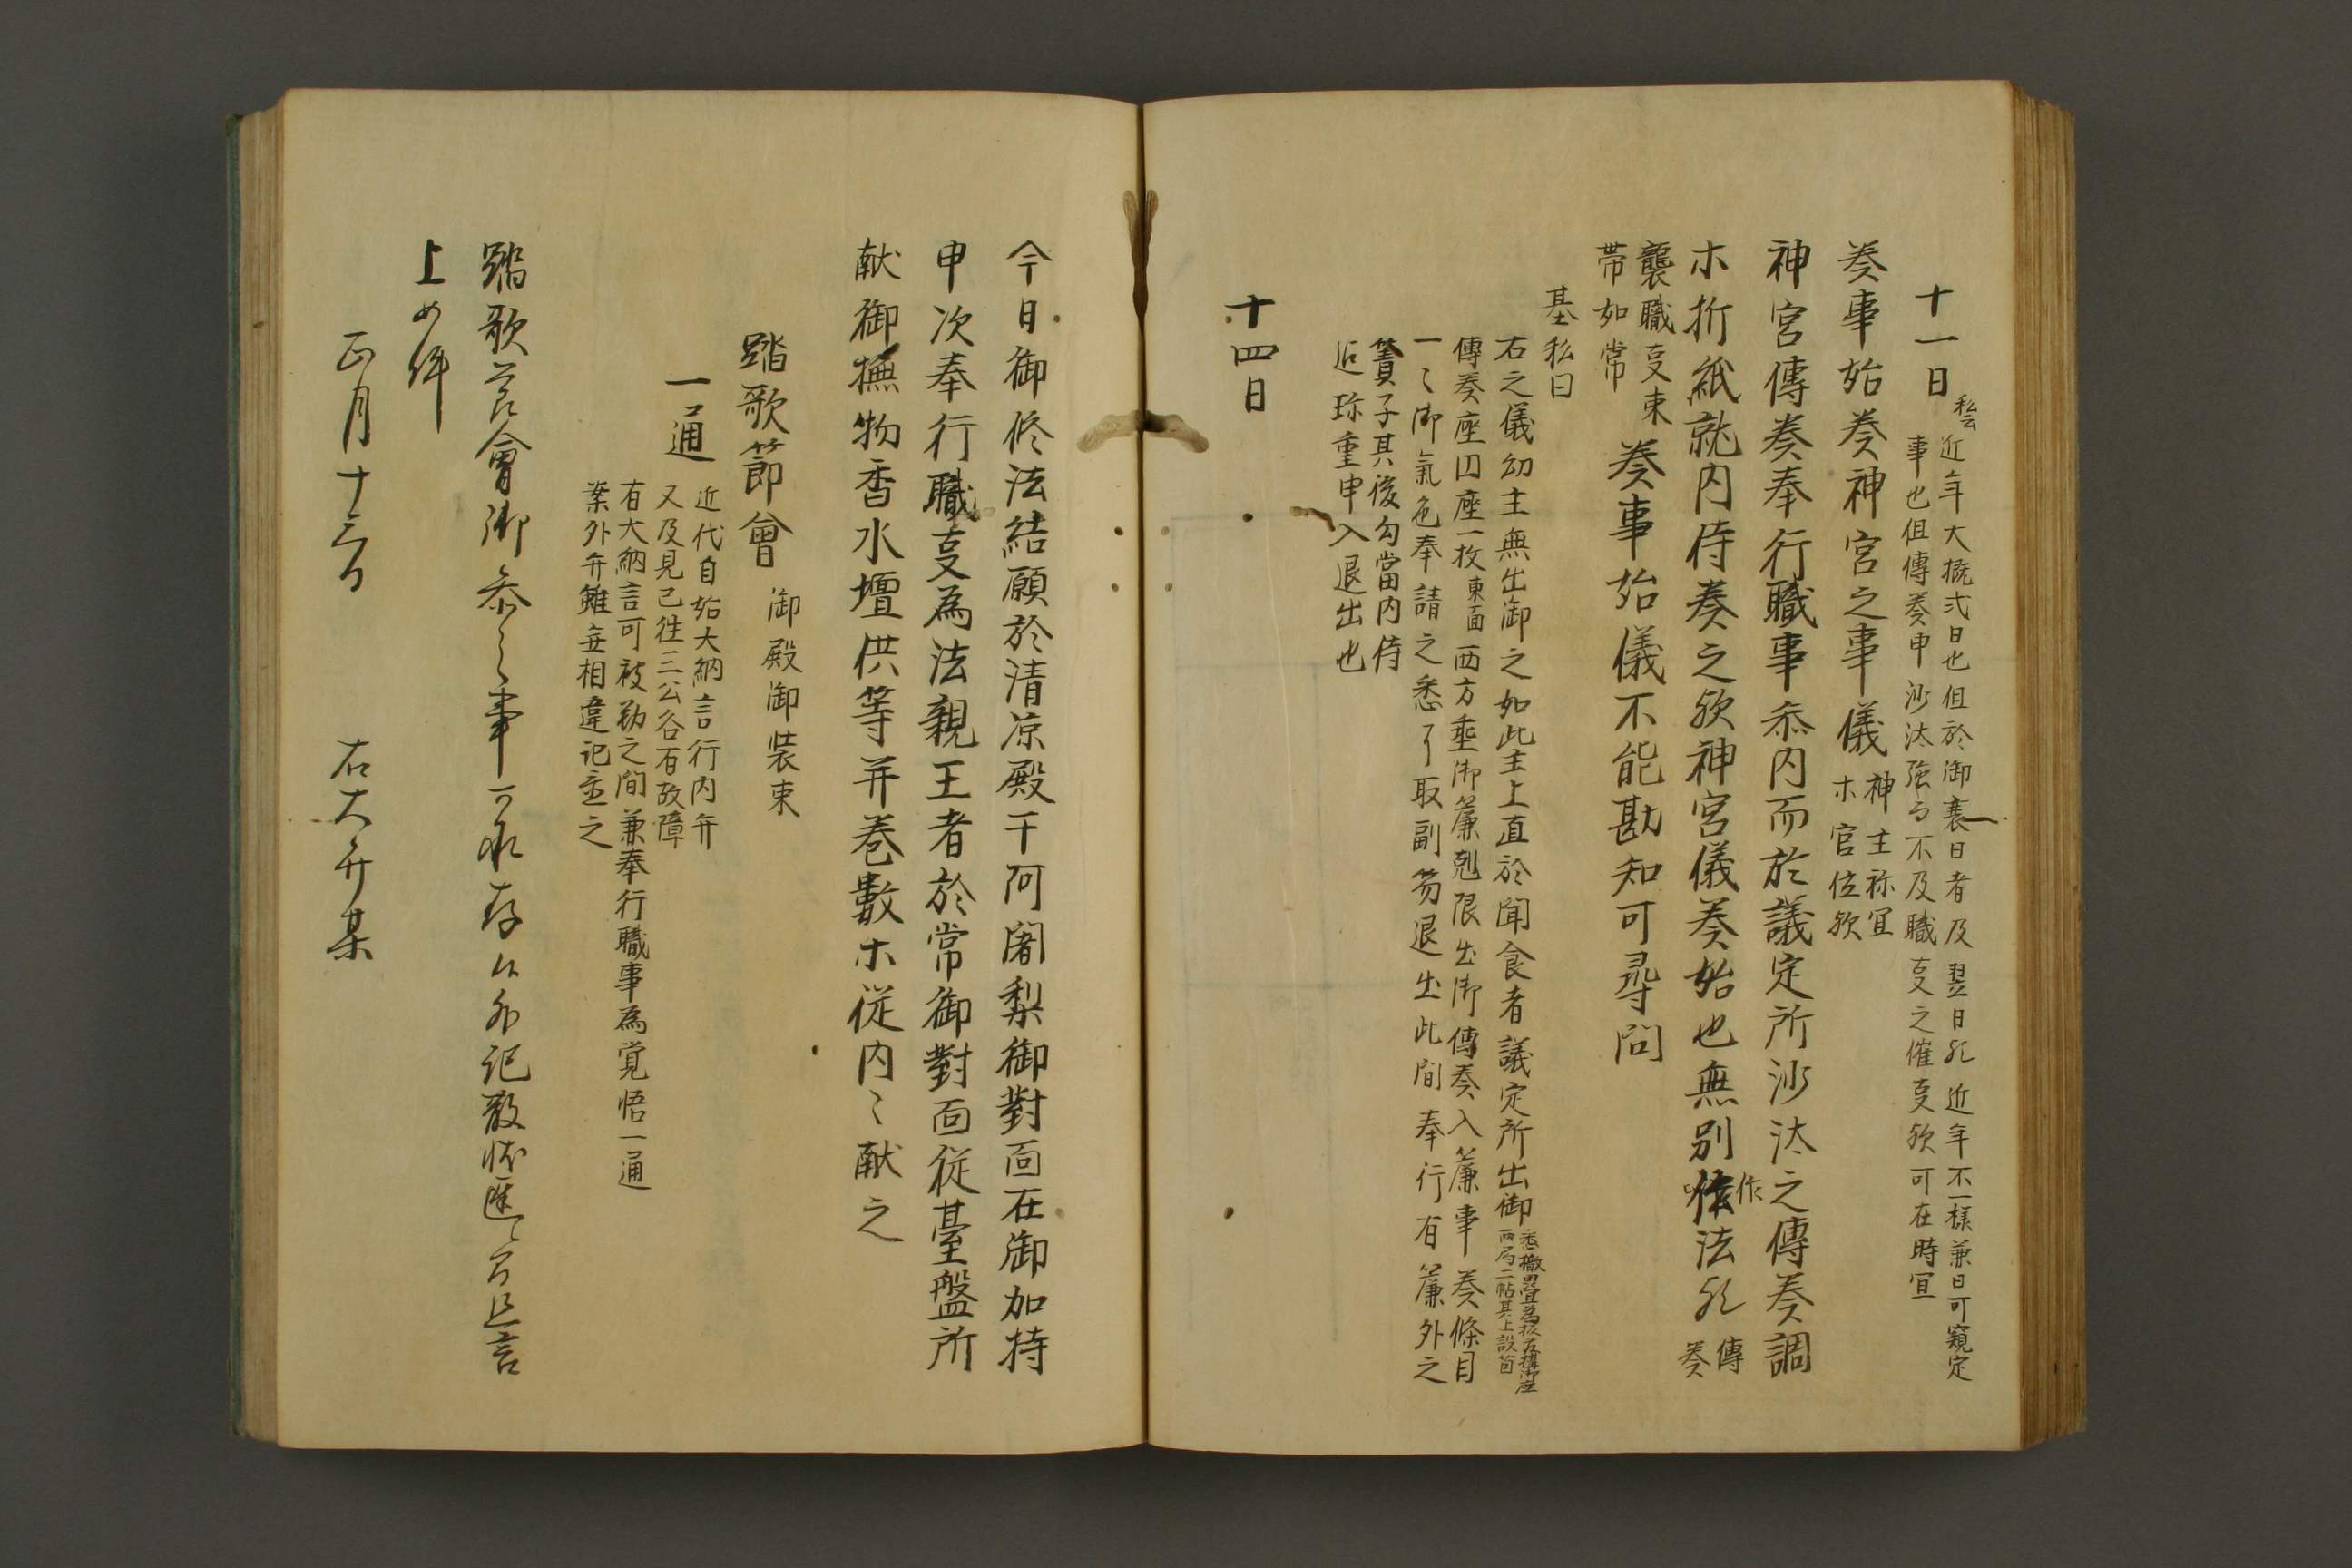 十一日 私云
近年大概式日也但於御衰日者及翌日歟近年不一様兼日可窺定
事也但傳奏申沙汰強而不及職事之催叓歟可在時冝
奏事始奏神宮之事儀
神主祢冝
木官位歟
神宮傳奏奉行職事忝内而於議定所沙汰之傳奏調
木折紙就内侍奏之歟神宮儀奏始也無別作法歟
傳
奏
襲職叓束
帯如常
奏事始儀不能勘知可尋問
基私曰
右之儀幼主無出御之如此主上直於聞食者議定所出御
両局二帖其上設茵
傳奏座囚座一枚東面西方垂御簾剋限出御傳奏入簾事奏條目
一〻御氣色奉請之悉了取副笏退出此間奉行有簾外之
簀子其後勾當内侍
近珎重申入退出也
十四日
今日御修法結願於清凉殿干阿闍梨御對面在御加持
申次奉行職叓為法親王者於常御對面従臺盤所
献御撫物香水壇供等并巻數木従内〻献之
踏歌節會 御殿御装束
一通
近代自始大納言行内弁
又及見已往三公各有故障
有大納言可被勤之間兼奉行職事為覚悟一通
葉外弁雖無相違記並之
踏歌節會御忝之事可令存
上如件
正月十三日 右大弁某